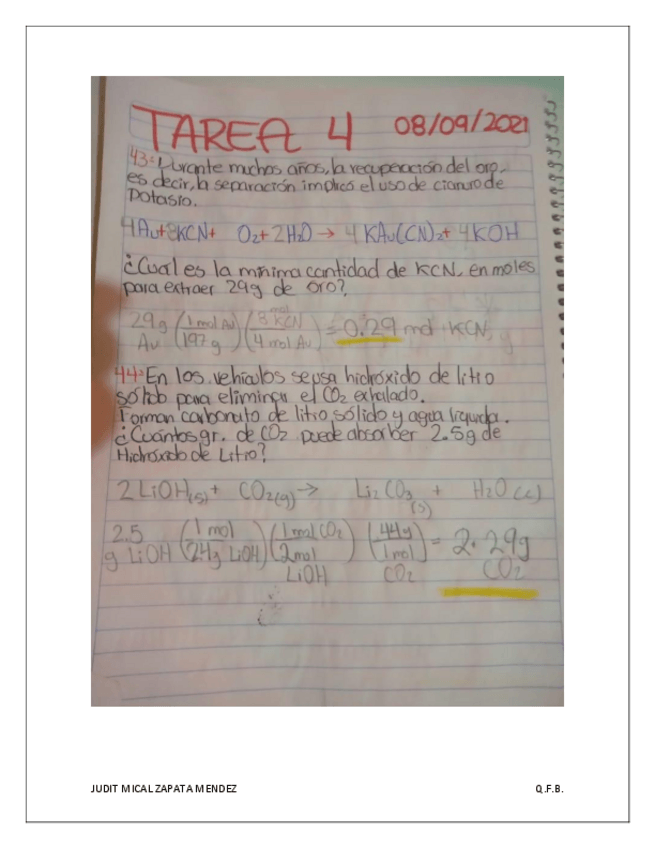 TAREA 4 08/09/2021
43: Durante muchos años, la recuperación del oro,
es decir, la separación implica el uso de cianuro de
Potasio.
4Au+8KCN+ O₂+2H₂O → 4KAu(CN)₂+ 4KOH
¿Cual es la minima cantidad de KCN, en moles
para extraer 29g de oro?
29g Au (1 mol Au / 197 g) (8 KCN / 4 mol Au) = 0.29 mol KCN
44: En los vehiculos se usa hidróxido de litio
sólido para eliminar el CO₂ exhalado.
Forman carbonato de litio sólido y agua líquida.
¿Cuántos gr. de CO₂ puede absorber 2.5g de
Hidróxido de Litio?
2 LiOH(s) + CO₂(g) → Li₂CO₃(s) + H₂O(l)
2.5 g LiOH (1 mol / 24g LiOH) (1 mol CO₂ / 2 mol LiOH) (44g / 1 mol CO₂) = 2.29g CO₂
JUDIT MICAL ZAPATA MENDEZ Q.F.B.